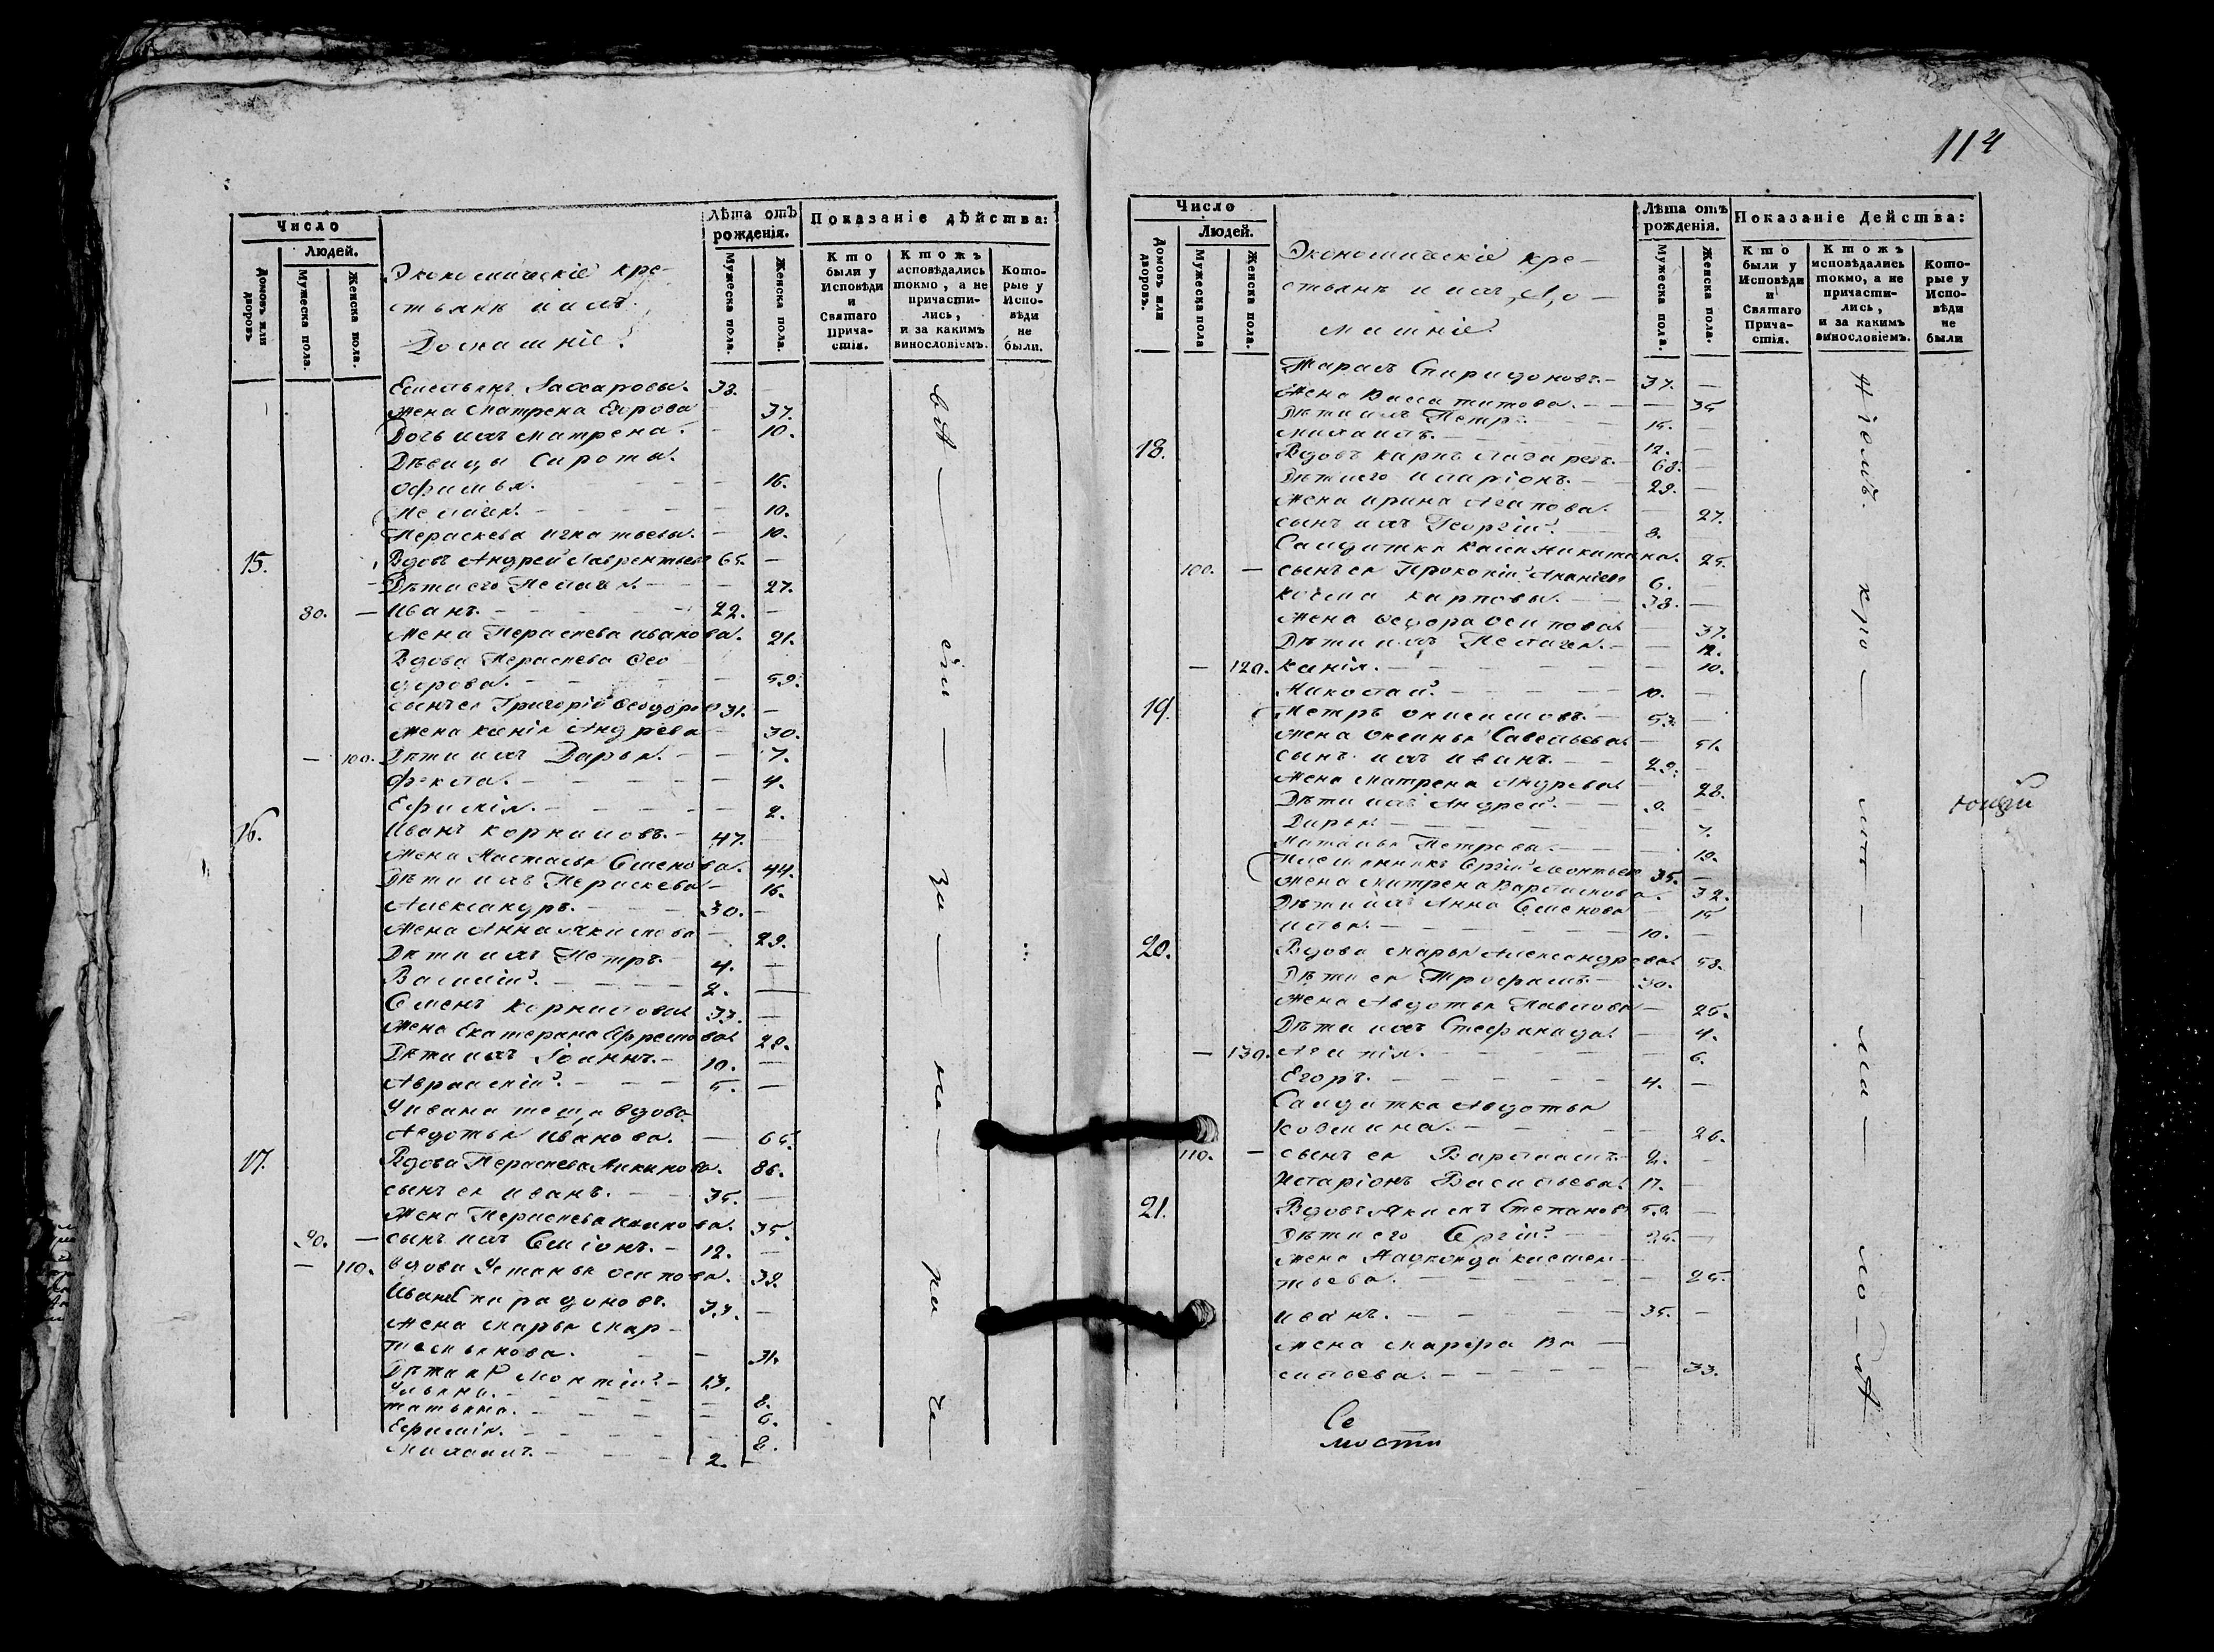 Число
Людей.
Домовъ или дворовъ
Мужеска пола.
Женска пола.
Экономическіе кре-
стьяне и ихъ
Домашніе.
Лѣта отъ рожденія.
Мужеска пола.
Женска пола.
Показаніе дѣйства:
Кто были у Исповѣди и Святаго Прича-стія.
Ктожъ исповѣдались токмо, а не причасти-лись, и за какимъ винословіемъ.
Кото-рые у Испо-вѣди не были.
Захаровы. 38. —
Жена Матрена Егорова — 37.
Дочь ихъ Матрена. — 10.
Дѣвицы Сироты.
Офимья. — 16.
Пелагея. — 10.
Параскева Игнатьевы. — 10.
15. Вдовъ Андрей Лаврентьевъ 65. —
Дѣти его Пелагея. — 27.
80. — Иванъ. — 22. —
Жена Параскева Иванова. 21.
Вдова Параскева Фео
дорова. — 59.
сынъ ея Григорій Феодоровъ 31. —
Жена Ксенія Андрева — 30.
— 100. Дѣти ихъ Дарья. — 7.
Фекла. — 4.
Ефимія. — 2.
16. Иванъ Корниловъ. — 47. —
Жена Настасья Семенова. 44.
Дѣти ихъ Параскева — 16.
Александръ. — 30. —
Жена Анна Акимова — 29.
Дѣти ихъ Петръ. 4. —
Василій. — 2. —
Семенъ Корниловъ 33. —
Жена Екатерина Ефремова 28.
Дѣти ихъ Іоаннъ. — 10. —
Аврамій. — 5. —
У Ивана теща вдова
Авдотья Иванова. — 65.
17. Вдова Параскева 86.
сынъ ея Иванъ. — 35. —
Жена Параскева 35.
90. — сынъ ихъ Симіонъ. — 12. —
— 110. вдова Устинья Осипова. 39.
Иванъ 33. —
Жена Марья Мар-
темьянова. — 31.
Дѣти ихъ 13.
Ульяна. — 8.
Татьяна. — 6.
Ефимія. — 2.
Михаилъ. — 2. —
вА — сіи — за — не — ра че —
114
Число
Людей.
Домовъ или дворовъ.
Мужеска пола
Женска пола.
Экономическіе кре-
стьяне и ихъ До-
машніе.
Лѣта отъ рожденія.
Мужеска пола.
Женска пола.
Показаніе Действа:
Кто были у Исповѣди и Святаго Прича-стія.
Ктожъ исповѣдались токмо, а не причасти-лись, и за какимъ винословіемъ.
Кото-рые у Испо-вѣди не были
Тарасъ Спиридоновъ. — 37. —
Жена Васса Титова. — 35
Дѣти ихъ Петръ. — 15. —
Михаилъ. — 12. —
18. Вдовъ Карпъ Лазаревъ. — 68. —
Дѣти его Иларіонъ. — 29. —
Жена Ирина Агапова. — 27.
сынъ ихъ Георгій. — 8. —
Салдатка Никитина. 25.
100. — сынъ ея Прокопій Ананіевъ 6. —
Козма Карповъ. — 38. —
Жена Федора Осипова — 37.
Дѣти ихъ Пелагея. — 12.
— 120. Ксенія. — 10.
Николай. — 10. —
19. Петръ Онисимовъ. — 53. —
Жена Оксинья Савельева — 51.
сынъ ихъ Иванъ. — 29. —
Жена Матрена Андрева — 28.
Дѣти ихъ Андрей. — 9. —
Дарья — 7.
Наталья Петрова. — 19.
Сергій Леонтьевъ 35. —
Жена Матрена Варламова. — 32.
Дѣти ихъ Анна Семенова — 15
Илья. — 10. —
20. Вдова Марья Александрова 58.
Дѣти ея Трофимъ — 30. —
Жена Авдотья Павлова — 25.
Дѣти ихъ Стефанида — 4.
— 130. Агапія. — 6.
Егоръ. — 4. —
Салдатка Авдотья
Козмина. — 26.
110. — сынъ ея Варламъ 2. —
Иларіонъ Васильевъ 17. —
21. Вдовъ Акимъ Степановъ 59. —
Дѣти его Сергій — —
Жена
тьева. — 25.
Иванъ. — 35. —
Жена Марфа Ва —
сильева. — 33.
ніемъ. кро — мѣ — ма — ло — лѣ
ющи
Се
мости